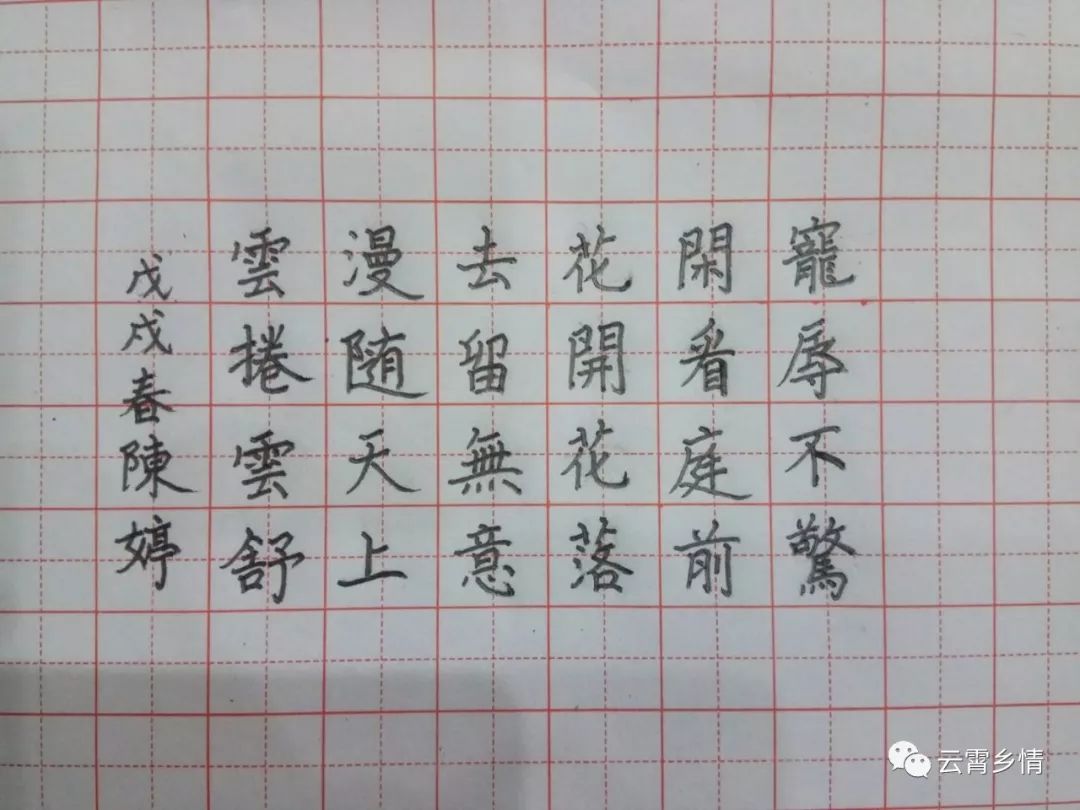 寵辱不驚
閑看庭前
花開花落
去留無意
漫随天上
雲捲雲舒
戊戌春陳婷
云霄乡情